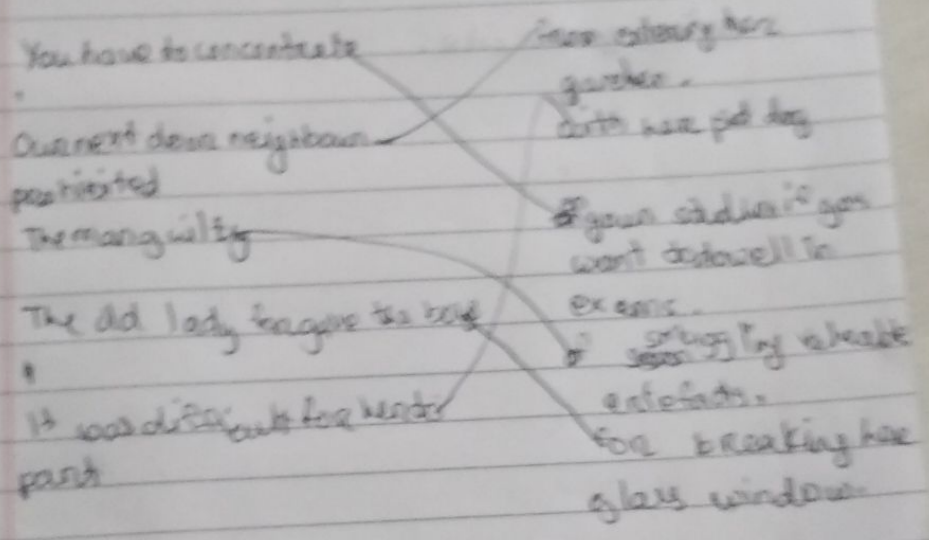 You have to concentrate
Our next door neighbour
prohibited
The man guilty
The old lady forgave the boy
It was difficult for her to
part
from entering her
garden.
with her pet dog
your studies if you
want to do well in
exams.
of smuggling
artefacts.
for breaking her
glass window.